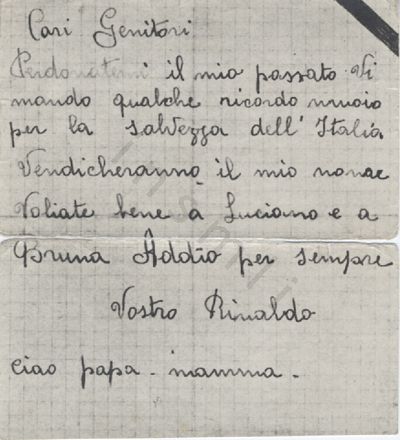 Cari Genitori
Perdonatemi il mio passato Vi
mando qualche ricordo muoio
per la salvezza dell'Italia
Vendicheranno il mio nome
Voliate bene a Luciano e a
Bruna Addio per sempre
Vostro Rinaldo
Ciao papa - mamma -